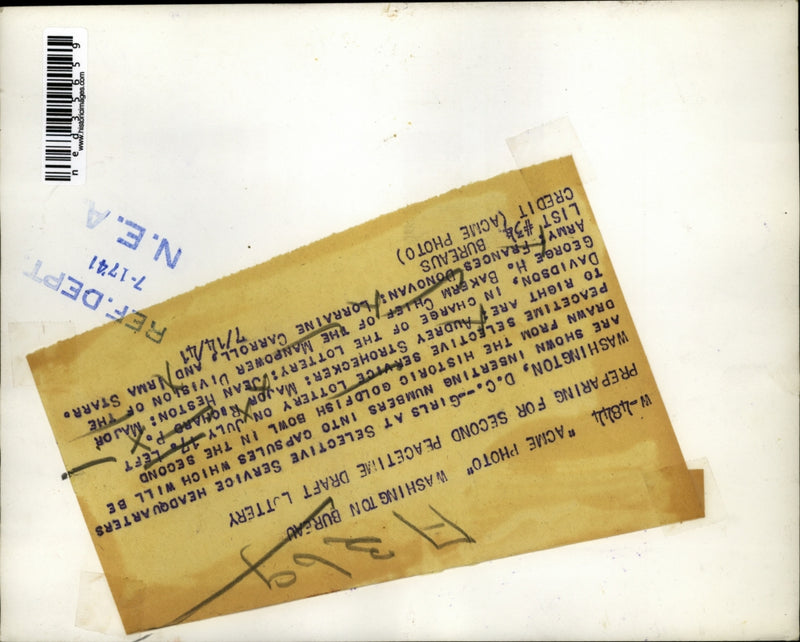 ned35659
www.historicimages.com
REF. DEPT.
7-1741
N.E.A.
W-4844 "ACME PHOTO" WASHINGTON BUREAU
PREPARING FOR SECOND PEACETIME DRAFT LOTTERY
WASHINGTON, D.C.--GIRLS AT SELECTIVE SERVICE HEADQUARTERS
ARE SHOWN INSERTING NUMBERS INTO CAPSULES WHICH WILL BE
DRAWN FROM THE HISTORIC GOLDFISH BOWL IN THE SECOND
PEACETIME SELECTIVE SERVICE LOTTERY ON JULY 17. LEFT
TO RIGHT ARE AUDREY STROHECKER: MAJOR RICHARD P.
DAVIDSON, IN CHARGE OF THE LOTTERY: JEAN HESTON: MAJOR
GEORGE H. BAKERM CHIEF OF THE MANPOWER DIVISION OF THE
ARMY, FRANCES DONOVAN: LORRAINE CARROLL, AND NRMA STARR.
LIST BUREAUS 7/14/41
CREDIT (ACME PHOTO)